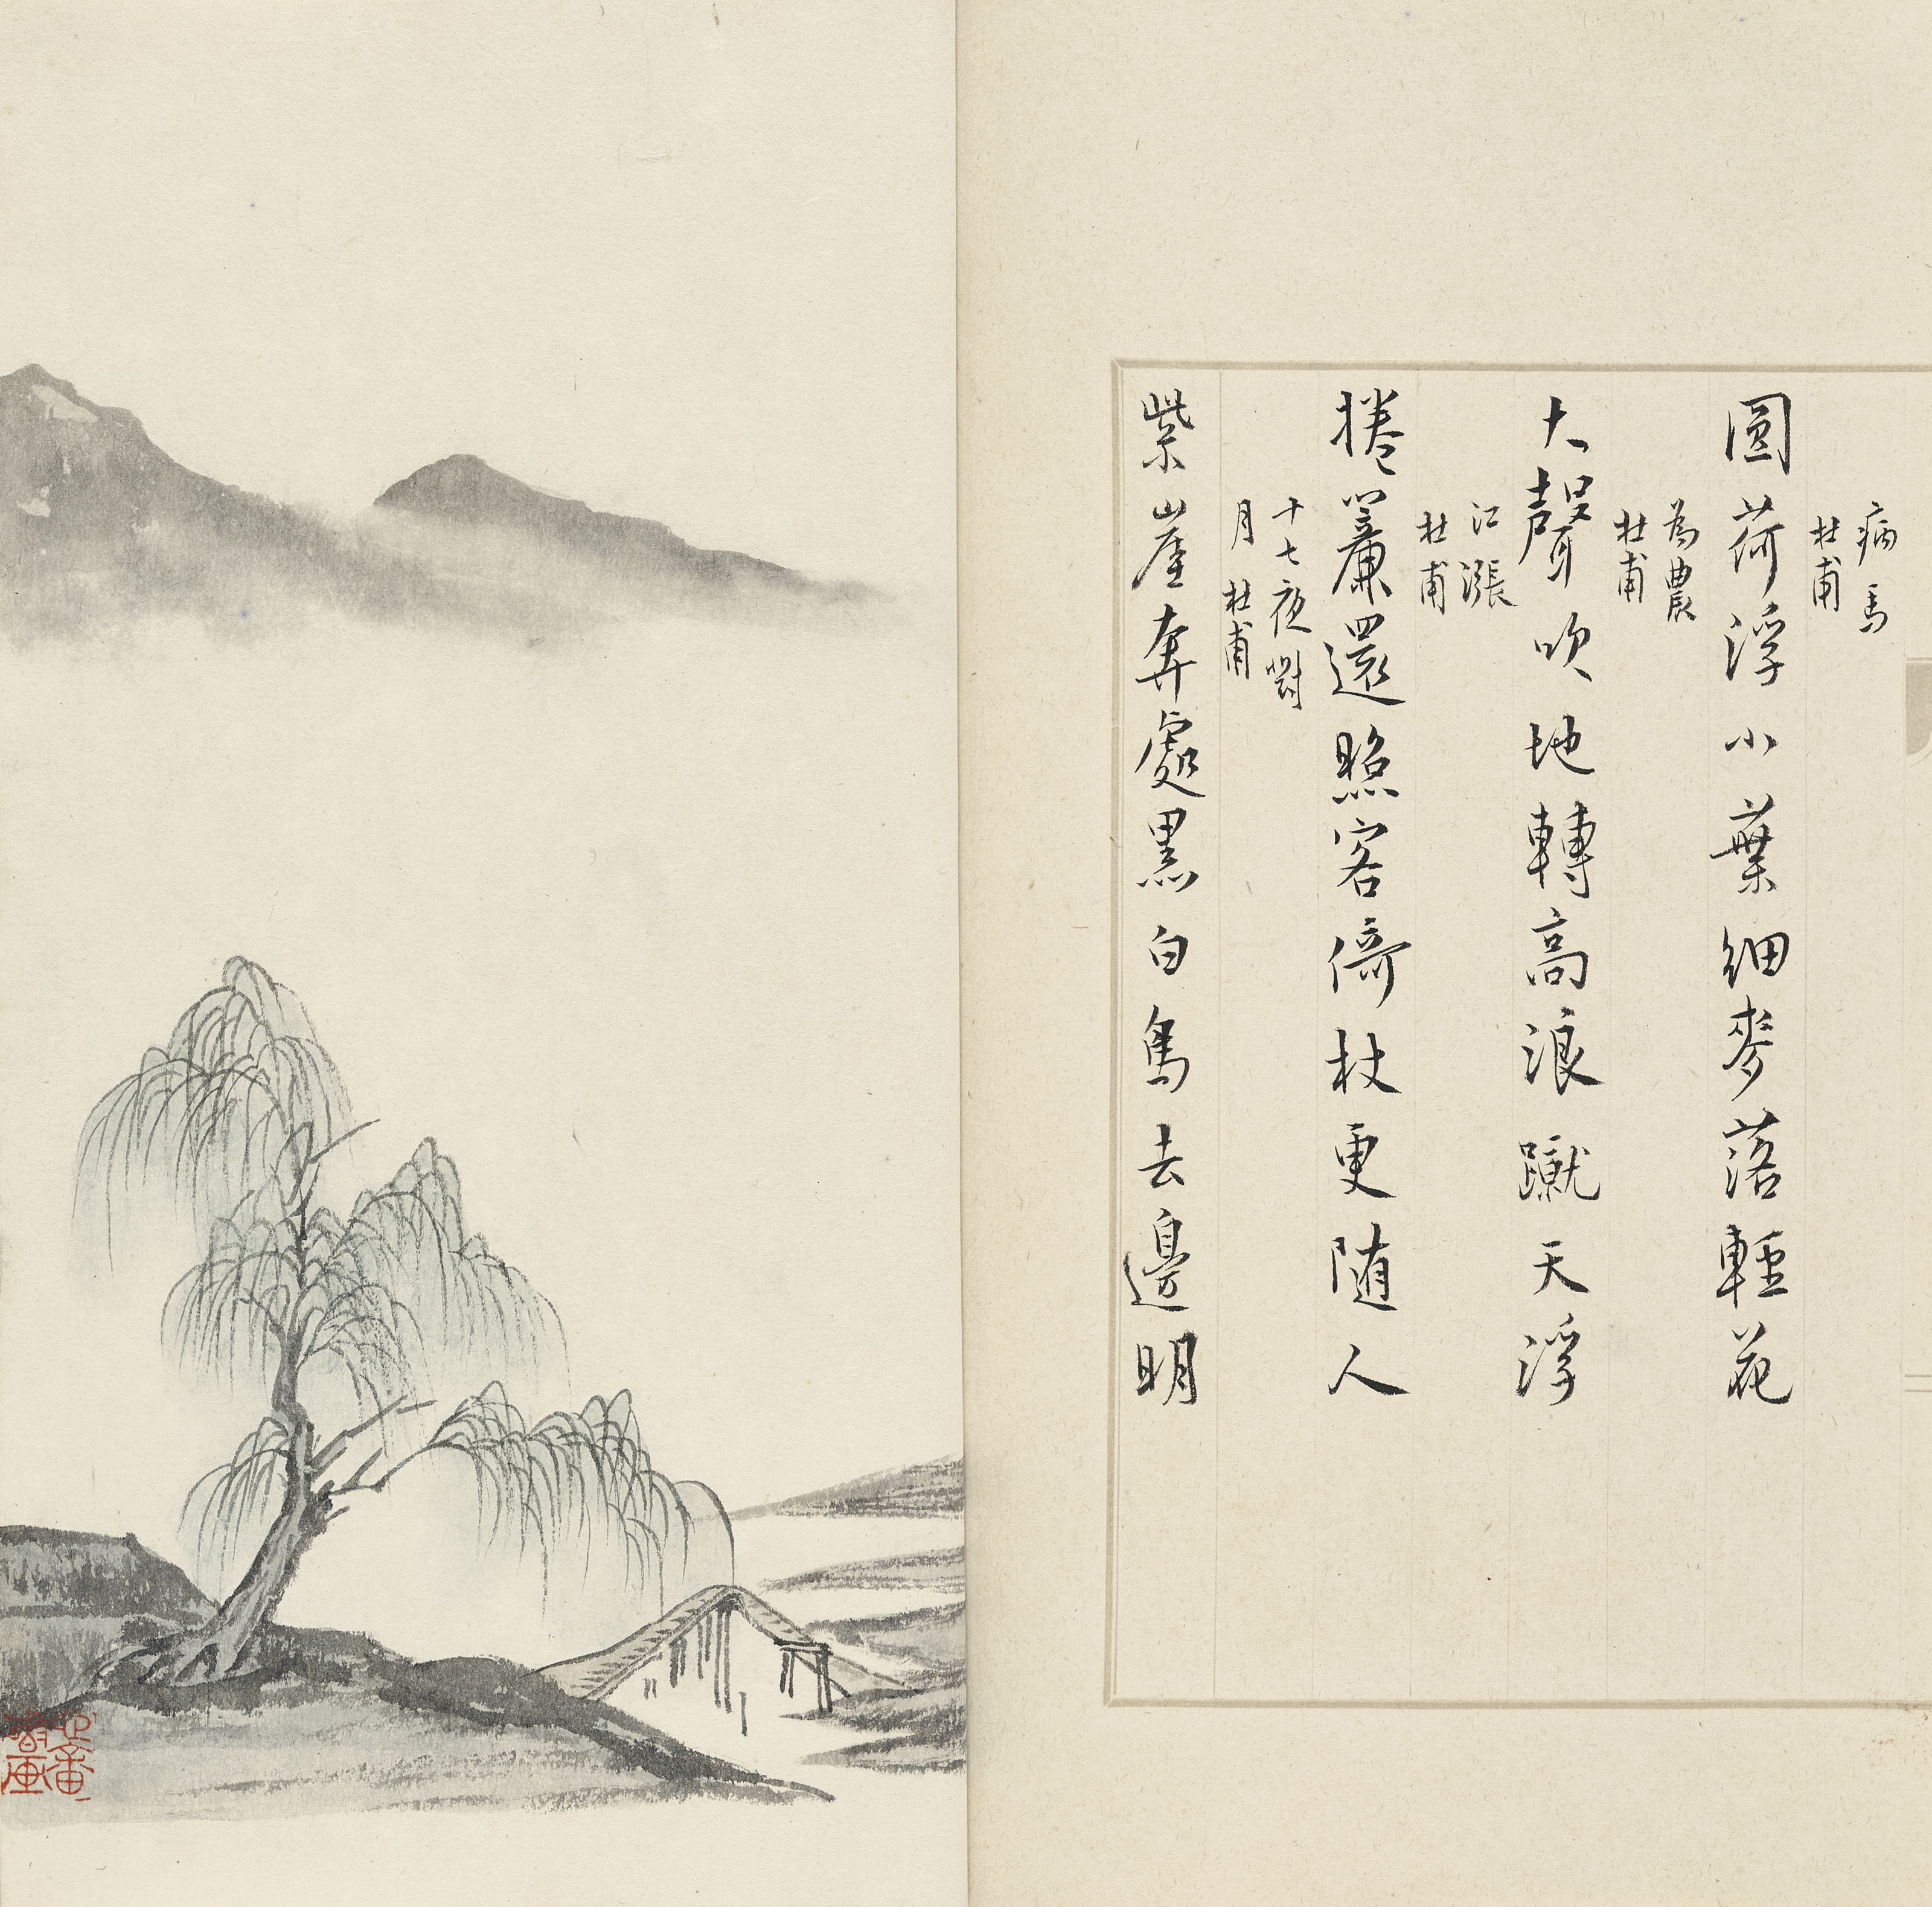 病馬
杜甫
圓荷浮小葉細麥落輕花
為農
杜甫
大聲吹地轉高浪蹴天浮
江漲
杜甫
捲簾還照客倚杖更随人
十七夜對
月 杜甫
紫崖奔處黑白鳥去邊明
心畬